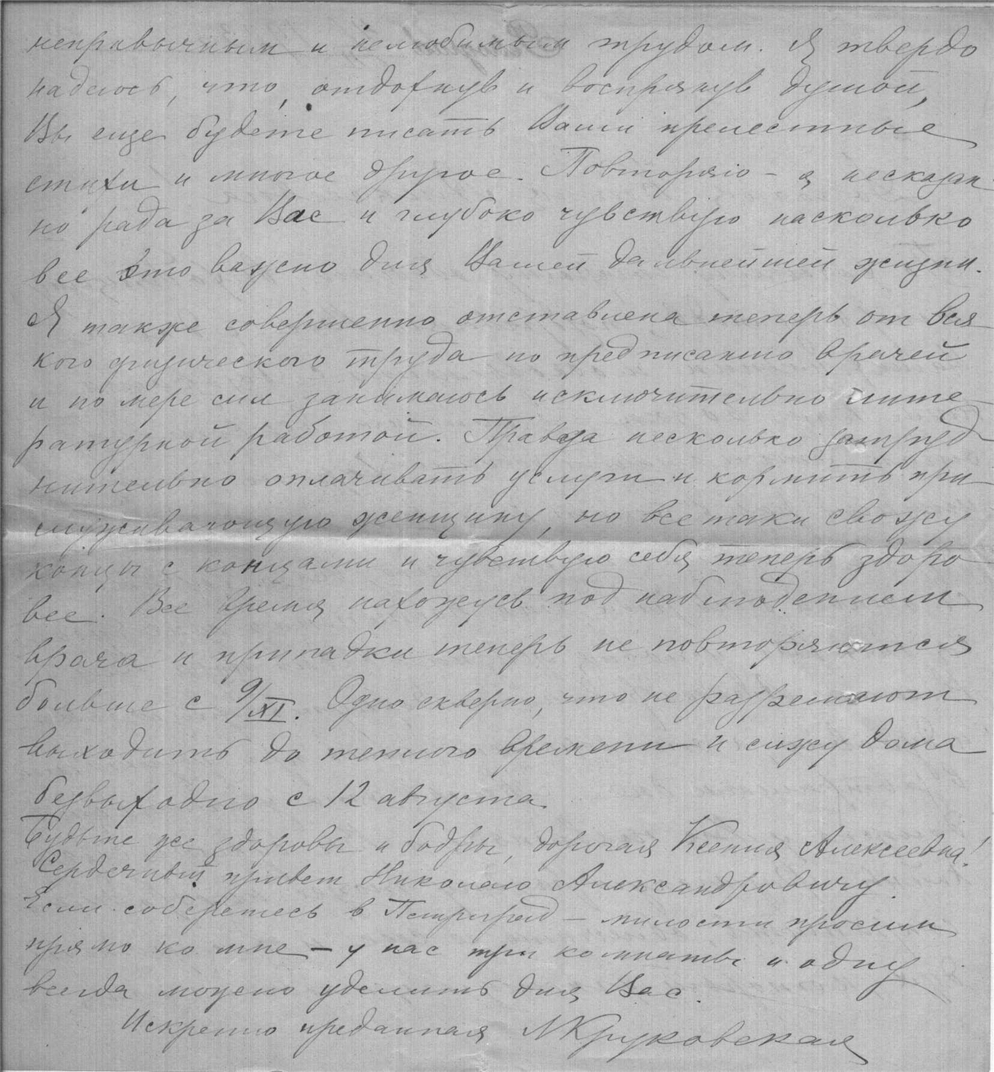 непривычным и нелюбимым трудом. Я твердо
надеюсь, что, отдохнув и воспрянув душой,
Вы еще будете писать Ваши прелестные
стихи и многое другое. Повторяю – я несказан
но рада за Вас и глубоко чувствую насколько
все это важно для Вашей дальнейшей жизни.
Я также совершенно отставлена теперь от вся
кого физического труда по предписанию врачей
и по мере сил занимаюсь исключительно лите-
ратурной работой. Правда несколько затруд-
нительно оплачивать услуги и кормить при
служивающую женщину, но все таки свожу
концы с концами и чувствую себя теперь здоро
вее. Все время нахожусь под наблюдением
врача и припадки теперь не повторяются
больше с 9/XI. Одно скверно, что не разрешают
выходить до теплого времени и сижу дома
безвыходно с 12 августа.
Будьте же здоровы и бодры, дорогая Ксения Алексеевна!
Сердечный привет Николаю Александровичу
Если соберетесь в Петроград – милости просим
прямо ко мне – у нас три комнаты и одну
всегда можно уделить для Вас.
Искренно преданная ЛКруковская